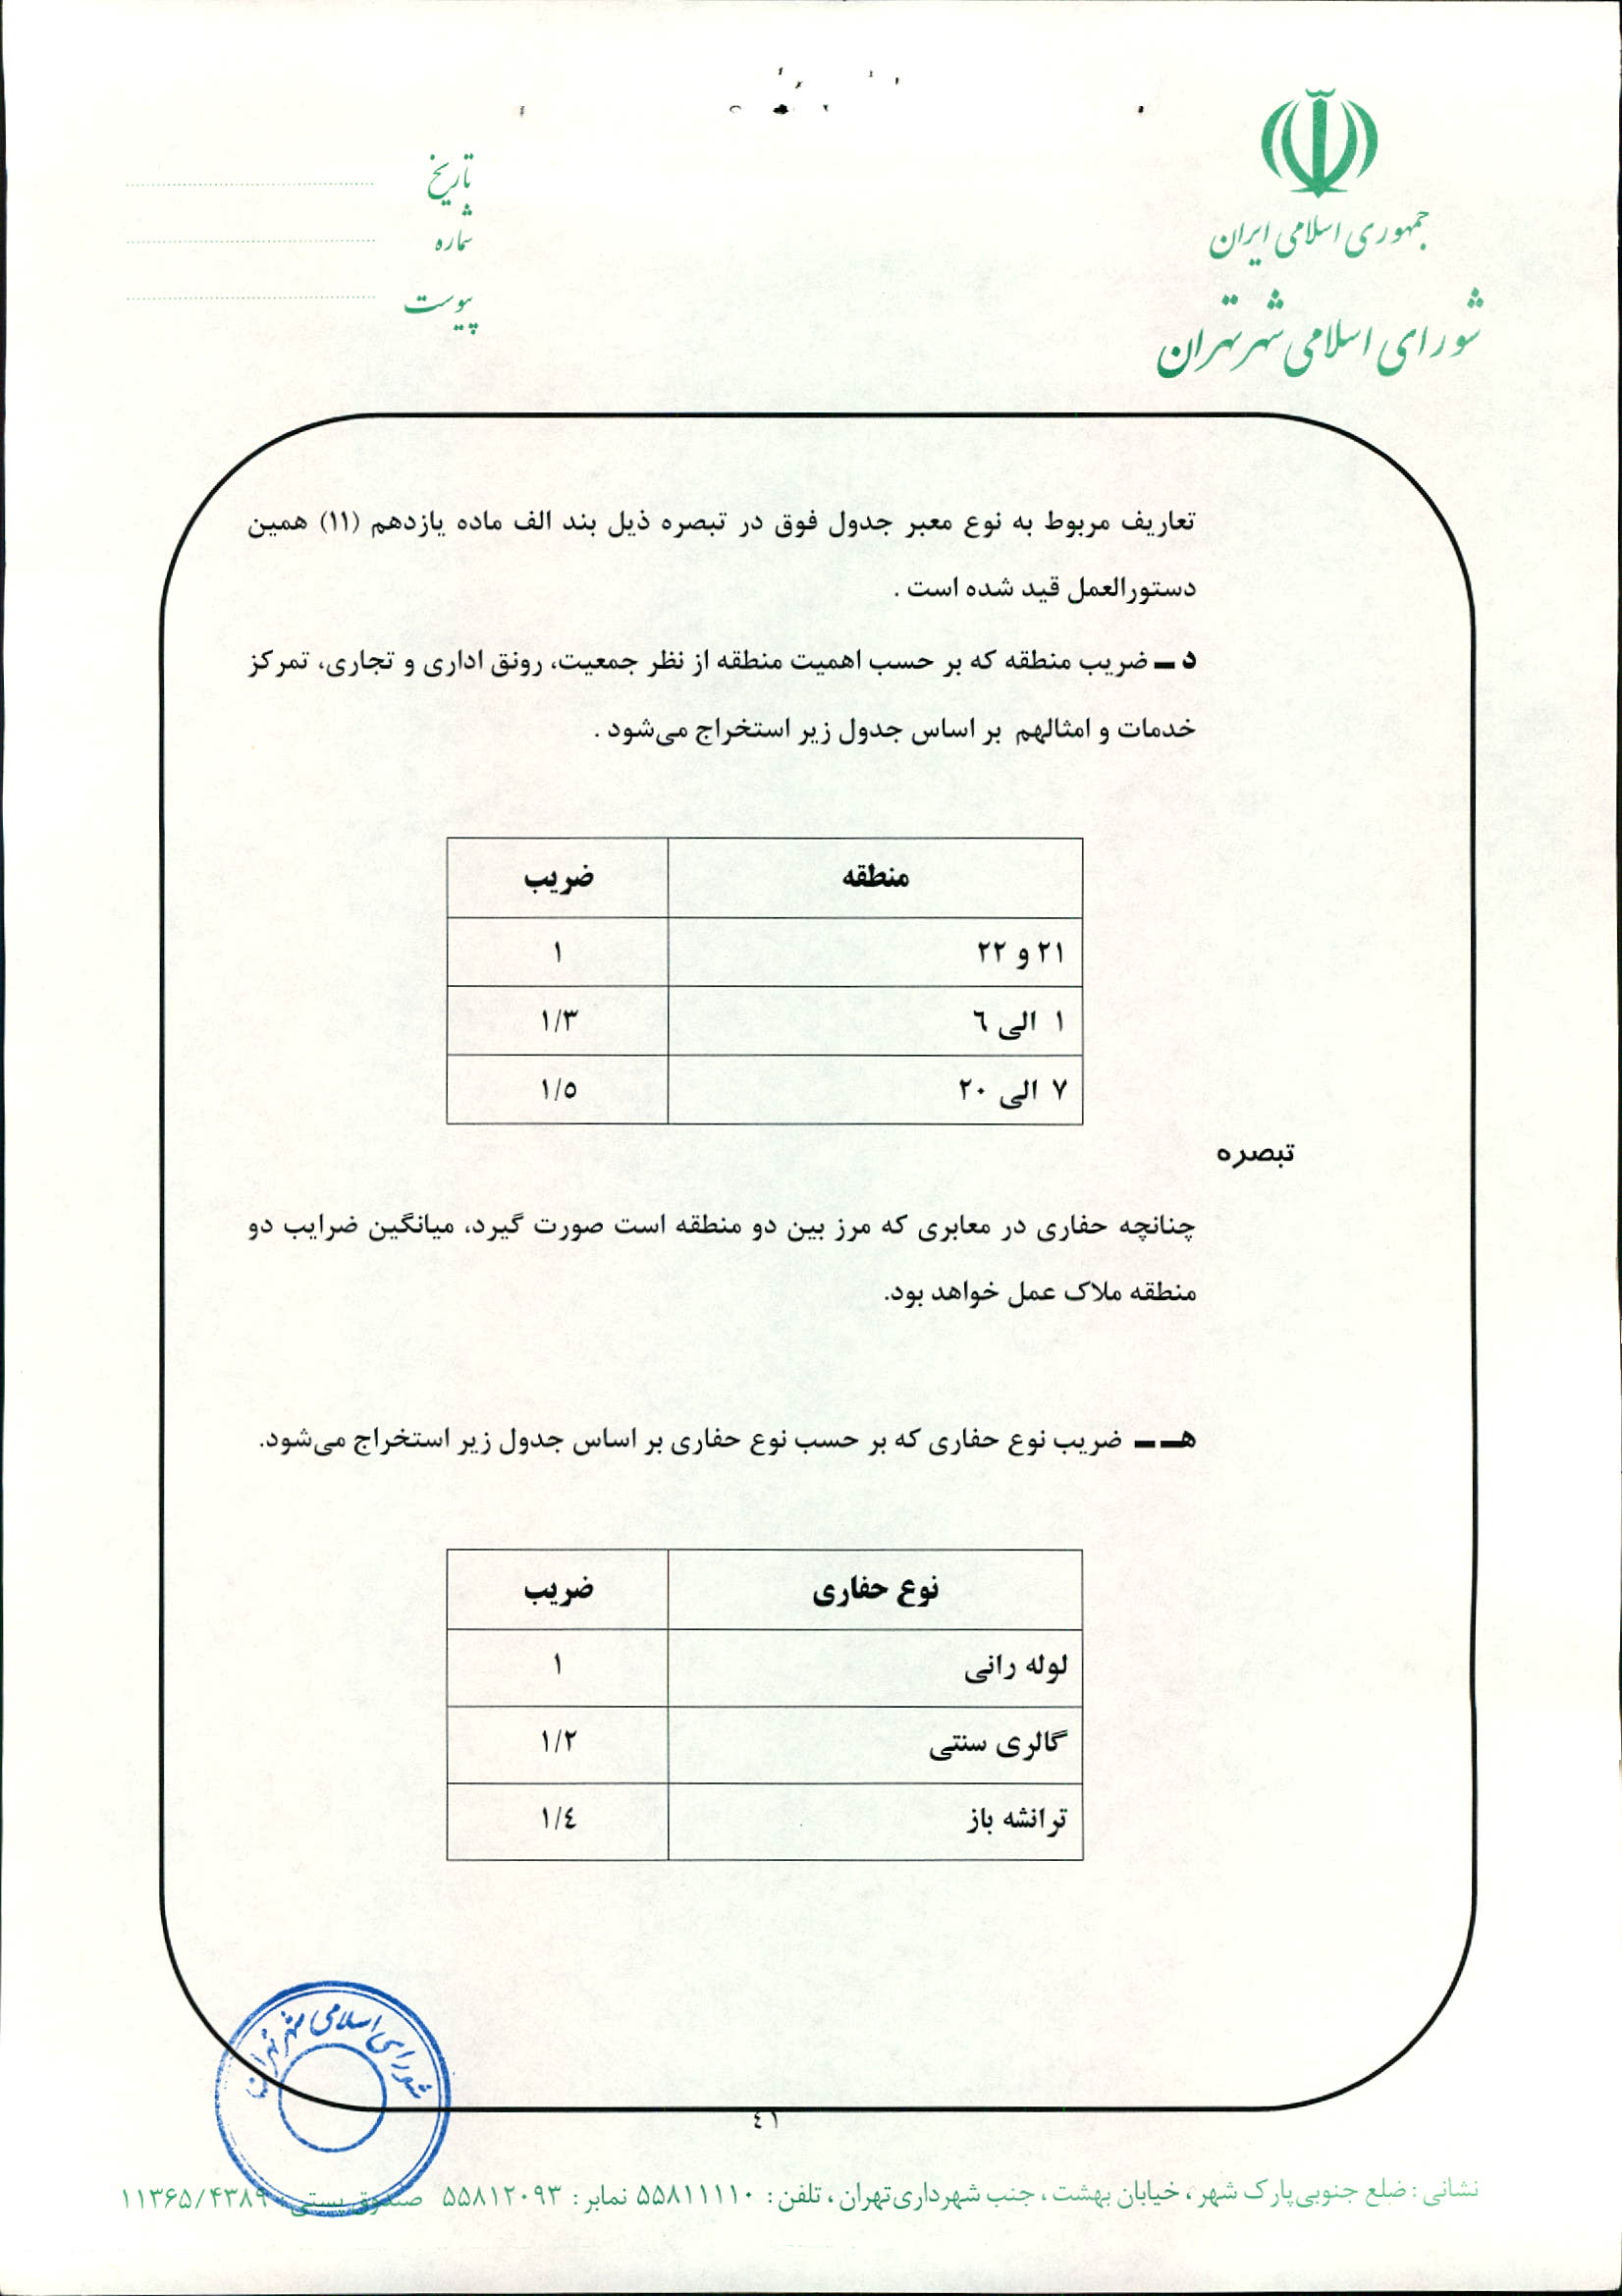 جمهوری اسلامی ایران
شورای اسلامی شهر تهران
تاریخ
شماره
پیوست
تعاریف مربوط به نوع معبر جدول فوق در تبصره ذیل بند الف ماده یازدهم (۱۱) همین
دستورالعمل قید شده است .
د ـ ضریب منطقه که بر حسب اهمیت منطقه از نظر جمعیت، رونق اداری و تجاری، تمرکز
خدمات و امثالهم بر اساس جدول زیر استخراج می‌شود .
منطقه ضریب
۲۱ و ۲۲ ۱
۱ الی ٦ ۱/۳
۷ الی ۲۰ ۱/٥
تبصره
چنانچه حفاری در معابری که مرز بین دو منطقه است صورت گیرد، میانگین ضرایب دو
منطقه ملاک عمل خواهد بود.
هـ ـ ضریب نوع حفاری که بر حسب نوع حفاری بر اساس جدول زیر استخراج می‌شود.
نوع حفاری ضریب
لوله رانی ۱
گالری سنتی ۱/۲
ترانشه باز ۱/٤
شورای اسلامی شهر تهران
٤١
نشانی : ضلع جنوبی پارک شهر ، خیابان بهشت ، جنب شهرداری تهران ، تلفن : ۵۵۸۱۱۱۱۰ نمابر : ۵۵۸۱۲۰۹۳ صندوق پستی : ۱۱۳۶۵/۴۳۸۹